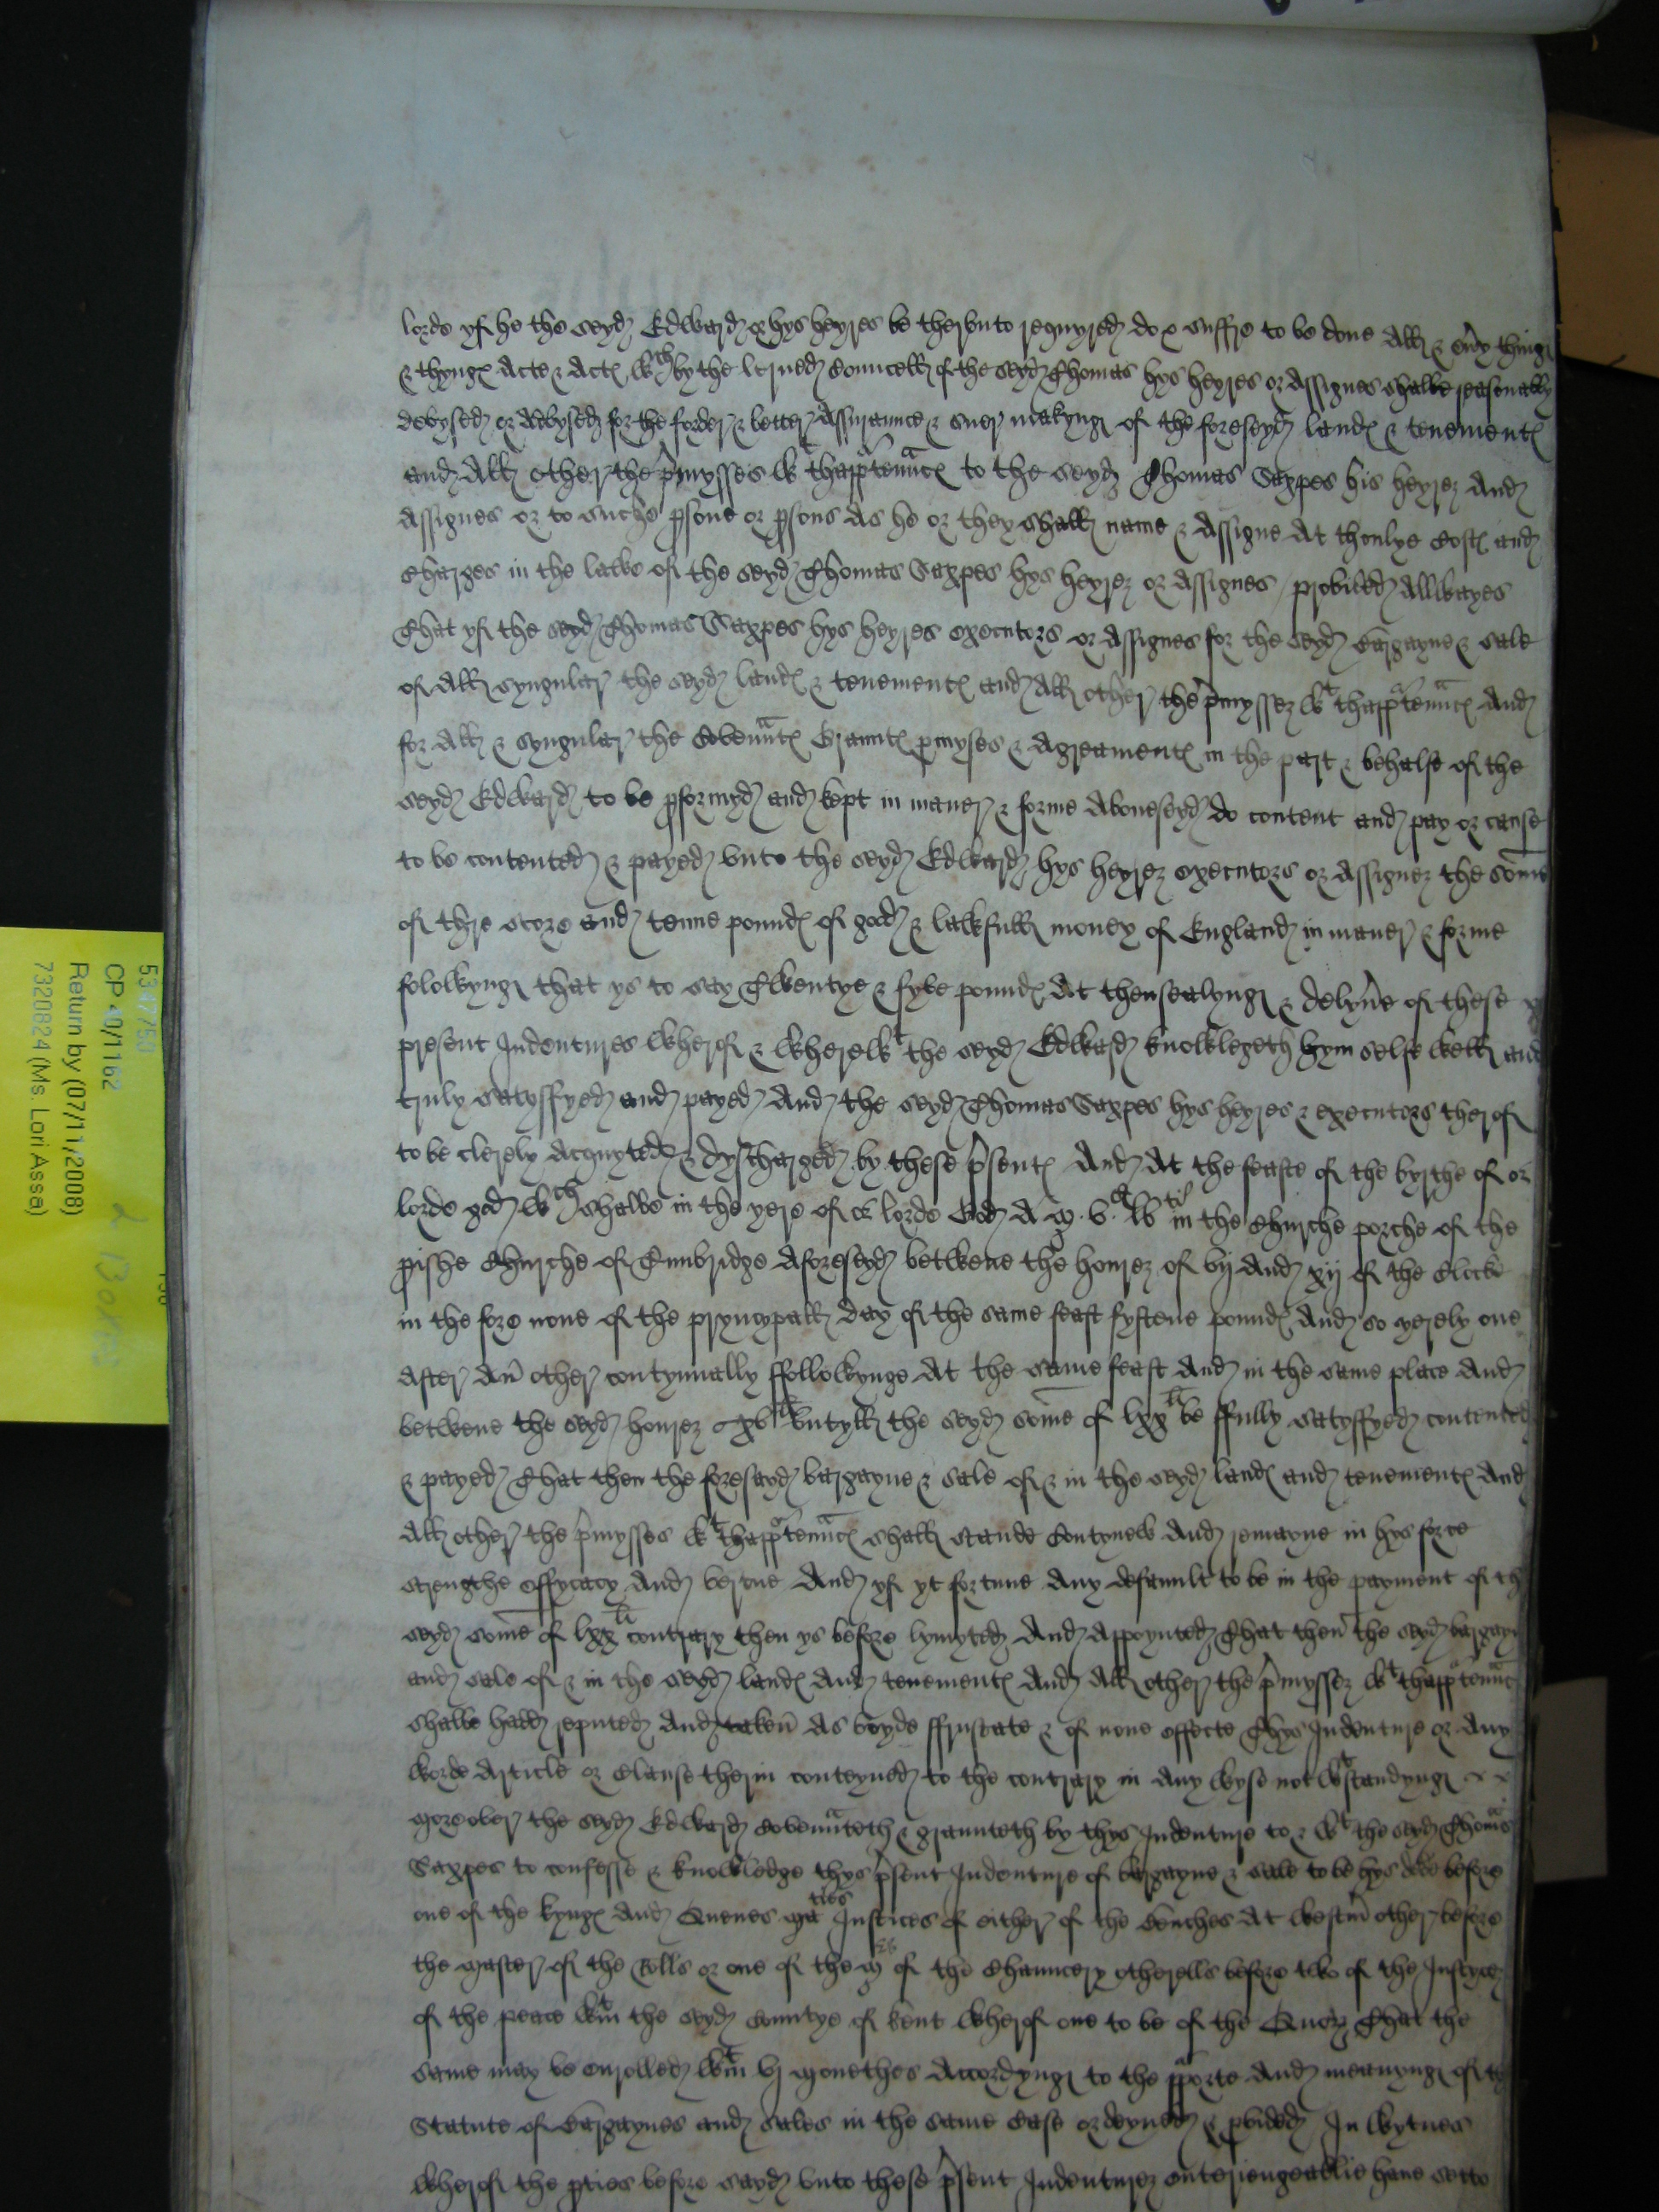 lorde yf he the seyd Edward & hys heyres be thervnto requyred do & suffre to be done all & eny thing
& thyngs acte & acts wch by the lerned Councell of the seyd Thomas hys heyres or assignes shalbe reasonably
devysed or advysed for the forder & better assuraunce & suer makyng of the foreseyd lands & tenements
and all other the pmysses wt thapptenncs to the seyd Thomas Saxpes his heyrez And
assignes or to suche psone or psons as he or they shall name & assigne at thonlye Costs and
Charges in the lawe of the seyd Thomas Saxpes hys heyrez or assignes / provided allwayes
That yf the seyd Thomas Saxpes hys heyres executors or assignes for the seyd Bargayne & sale
of all syngular the seyd lands & tenements and all other the pmyssez wt thapptenncs And
for all & syngular the Covennts Graunts pmyses & agreaments in the part & behalfe of the
seyd Edward to be pformyd and kept in maner & forme aboueseyd do content and pay or cause
to be contented & payed vnto the seyd Edward hys heyrez executors or assignez the some
of thre score and tenne pounds of good & lawfull money of England in maner & forme
folowyng that ys to say Twentye & fyve pounds at thensealyng & delyue of these
present Indentures wherof & wherewt the seyd Edward knowlegeth hym selfe well and
truly satysfyed and payed And the seyd Thomas Saxpes hys heyres & executors therof
to be clerely acquyted & dyscharged by these psents And at the feaste of the byrthe of or
lorde god wch shalbe in the yere of or lorde God A M. v. lv in the Churche porche of the
pishe Churche of Tunbridge aforeseyd betwene the hourez of vij And xij of the Clocke
in the fore none of the pryncypall day of the same feast fyftene pounds And so yerely one
after an other contynually ffollowynge at the same feast And in the same place And
betwene the seyd hourez xvli vntyll the seyd some of lxxli be ffully satysfyed contented
& payed That then the foresayd bargayne & sale of & in the seyd lands and tenements And
all other the pmysses wt thapptenncs shall stande Contynew And remayne in hys force
strengthe effycacy And vertue And yf yt fortune any defaulte to be in the payment of th
seyd some of lxxli contrary then ys before lymyted And appoynted That then the seyd bargayn
and sale of & in the seyd lands And tenements And all other the pmyssez wt thapptennc
shalbe hadd reputed And taken as voyde ffrustrate & of none effecte Thys Indenture or any
worde article or Clause therin conteyned to the contrary in any wyse notwtstandyng
Moreover the seyd Edward Covennteth & graunteth by thys Indenture to & wt the seyd Thomas
Saxpes to confesse & knowledge thys psent Indenture of bargayne & sale to be hys dede before
one of the kyngs And Quenes maties Justices of either of the Benches at westm other before
the Master of the Rolls or one of the Mrs of the Chauncery otherells before two of the Justyces
of the peace wtin the seyd Countye of kent wherof one to be of the Quorz That the
same may be enrolled wtin vj monethes Accordyng to the pporte And meanyng of the
Statute of Bargaynes and sales in the same Case ordeyned & pvided In wytnes
wherof the pties before sayd vnto these psent Indenturez enterchangeablie haue sette
5347750
CP 40/1162
Return by (07/11/2008)
7320824 (Ms. Lori Assa)
2 Boxes